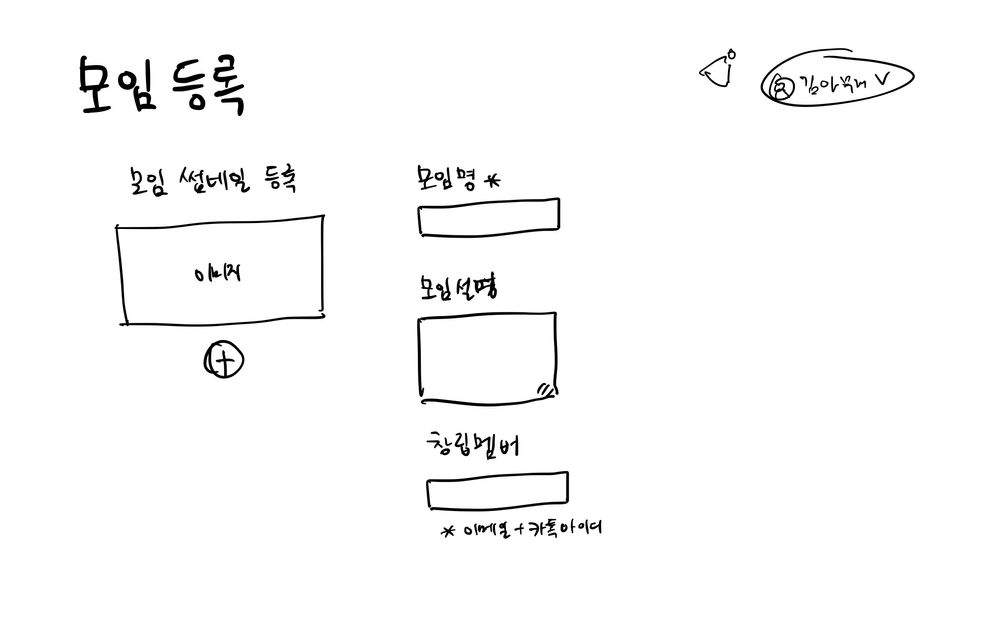 모임 등록
김아무개 V
모임 썸네일 등록
이미지
+
모임명 *
모임설명
창립멤버
* 이메일 + 카톡아이디